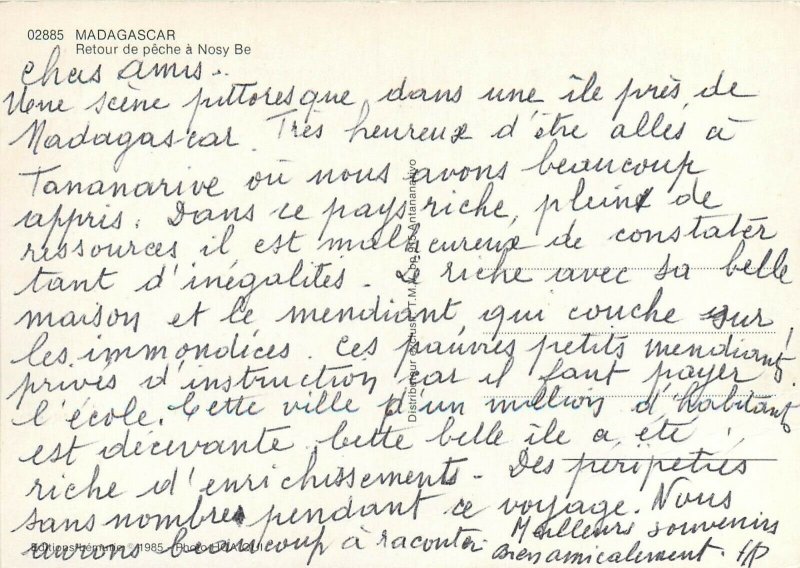 02885 MADAGASCAR
Retour de pêche à Nosy Be
chers amis..
Une scène pittoresque dans une île près de
Madagascar. Très heureux d'être allés à
Tananarive où nous avons beaucoup
appris. Dans ce pays riche, plein de
ressources il est malheureux de constater
tant d'inégalités. Le riche avec sa belle
maison et le mendiant qui couche sur
les immondices. Ces pauvres petits mendiants
privés d'instruction car il faut payer
l'école. Cette ville d'un million d'habitants
est décevante. Cette belle île a été
riche d'enrichissements. Des péripeties
sans nombre pendant ce voyage. Nous
aurons beaucoup à raconter.
Meilleurs souvenirs
bien amicalement.
Distributeur exclusif T.M. Antananarivo
Editions 1985 - Photo